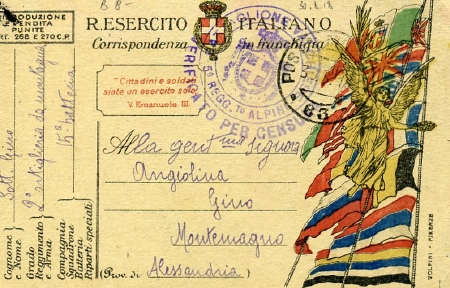 RIPRODUZIONE
E VENDITA
PUNITE
ART. 268 E 270 C.P.
B 8 -
30.8.18
R. ESERCITO ITALIANO
Corrispondenza in franchigia
"Cittadini e soldati
siate un esercito solo"
V. Emanuele III
VERIFICATO PER CENSURA
5° REGG.TO ALPINI
POS
83
Alla gent ma Signora
Angiolina
Gino
Montemagno
(Prov. di Alessandria)
Cognome e Nome. Sott. Gino
Grado
Reggimento e Arma 2° artiglieria da montagna
Compagnia
Squadrone
Batteria
Riparti speciali
15a batteria
VOLPINI - FIRENZE